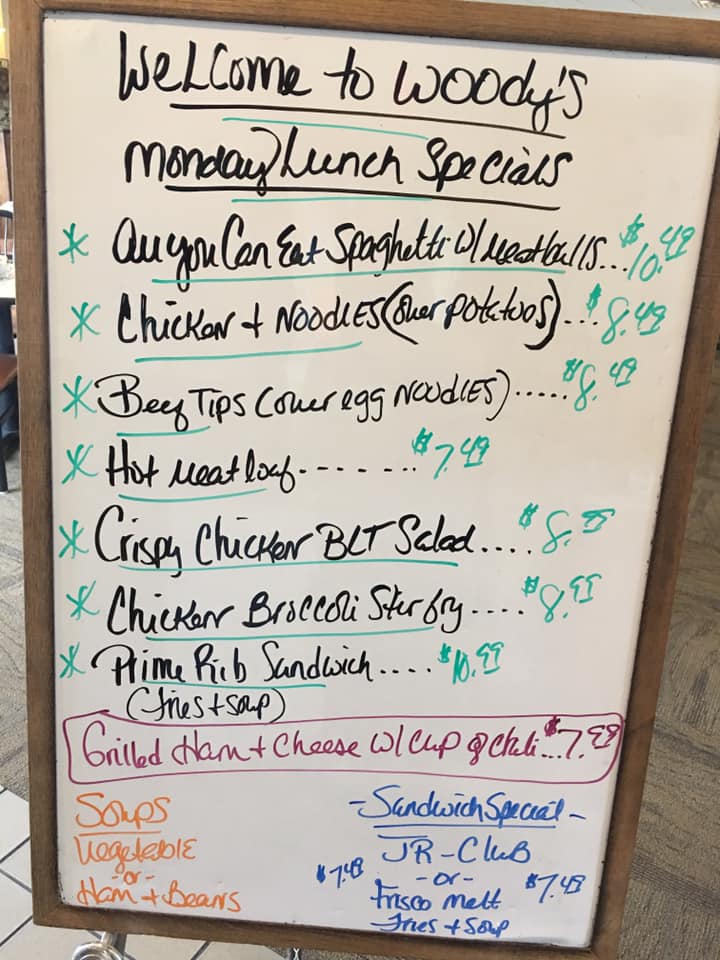 Welcome to Woody's
Monday Lunch Specials
* All you Can Eat Spaghetti w/ Meatballs...$10.49
* Chicken + Noodles (over potatoes)...$8.49
* Beef Tips (over egg Noodles).....$8.49
* Hot Meatloaf.......$7.49
* Crispy Chicken BLT Salad....$8.99
* Chicken Broccoli Stir fry....$8.99
* Prime Rib Sandwich....$10.99
(fries + soup)
Grilled Ham + Cheese w/ Cup of Chili...$7.99
Soups
Vegetable
-or-
Ham + Beans
-Sandwich Special-
JR-Club
$7.49
-or-
Frisco Melt $7.49
Fries + Soup